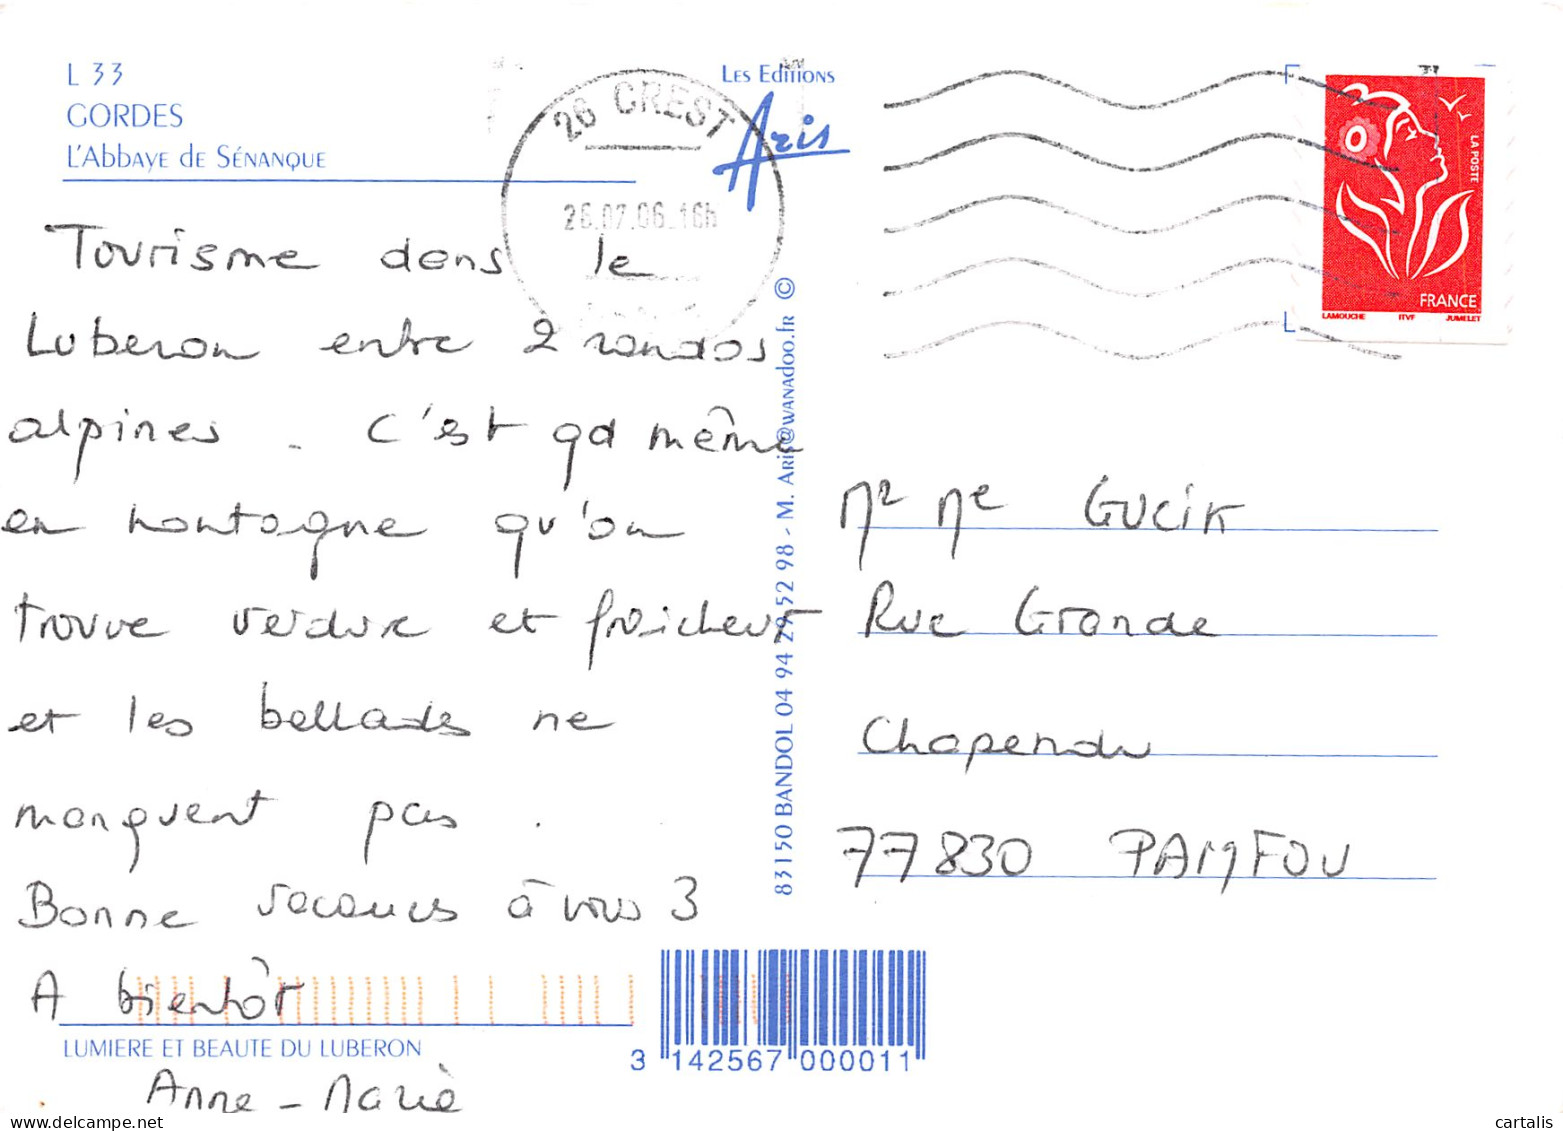 L 33
GORDES
L'Abbaye de Sénanque
Les Editions
Aris
26 CREST
26.07.06_16h
LA POSTE
FRANCE
LAMOUCHE ITVF JUMELET
Tourisme dans le
Luberon entre 2 randos
alpines . C'est qd même
en montagne qu'on
trouve verdure et fraicheur
et les ballades ne
manquent pas .
Bonne vacances à vous 3
A bientôt
Anne-Marie
LUMIERE ET BEAUTE DU LUBERON
83150 BANDOL 04 94 29 52 98 - M. Aris@wanadoo.fr ©
Mr Me GUCIK
Rue Grande
Chapendu
77830 PAMFOU
3 142567 000011
cartalis